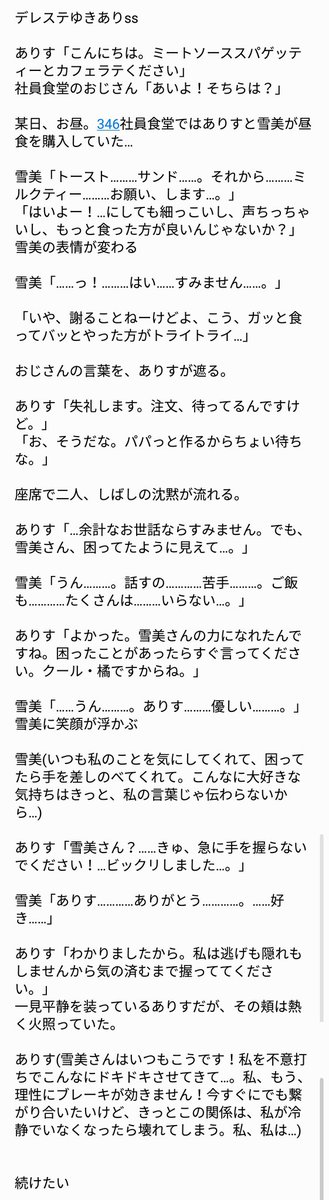 デレステゆきありss
ありす「こんにちは。ミートソーススパゲッテ
ィーとカフェラテください」
社員食堂のおじさん「あいよ！そちらは？」
某日、お昼。346社員食堂ではありすと雪美が昼
食を購入していた…
雪美「トースト………サンド……。それから………ミ
ルクティー………お願い、します…。」
「はいよー！…にしても細っこいし、声ちっちゃ
いし、もっと食った方が良いんじゃないか？」
雪美の表情が変わる
雪美「……っ！………はい……すみません……。」
「いや、謝ることねーけどよ、こう、ガッと食
ってバッとやった方がトライトライ…」
おじさんの言葉を、ありすが遮る。
ありす「失礼します。注文、待ってるんですけ
ど。」
「お、そうだな。パパっと作るからちょい待ち
な。」
座席で二人、しばしの沈黙が流れる。
ありす「…余計なお世話ならすみません。でも、
雪美さん、困ってたように見えて…。」
雪美「うん………。話すの…………苦手………。ご飯
も…………たくさんは………いらない…。」
ありす「よかった。雪美さんの力になれたんで
すね。困ったことがあったらすぐ言ってくださ
い。クール・橘ですからね。」
雪美「……うん………。ありす………優しい………。」
雪美に笑顔が浮かぶ
雪美(いつも私のことを気にしてくれて、困って
たら手を差しのべてくれて。こんなに大好きな
気持ちはきっと、私の言葉じゃ伝わらないか
ら…)
ありす「雪美さん？……きゅ、急に手を握らない
でください！…ビックリしました…。」
雪美「ありす…………ありがとう…………。……好
き……」
ありす「わかりましたから。私は逃げも隠れも
しませんから気の済むまで握っててくださ
い。」
一見平静を装っているありすだが、その頬は熱
く火照っていた。
ありす(雪美さんはいつもこうです！私を不意打
ちでこんなにドキドキさせてきて…。私、もう、
理性にブレーキが効きません！今すぐにでも繋
がり合いたいけど、きっとこの関係は、私が冷
静でいなくなったら壊れてしまう。私、私は…)
続けたい